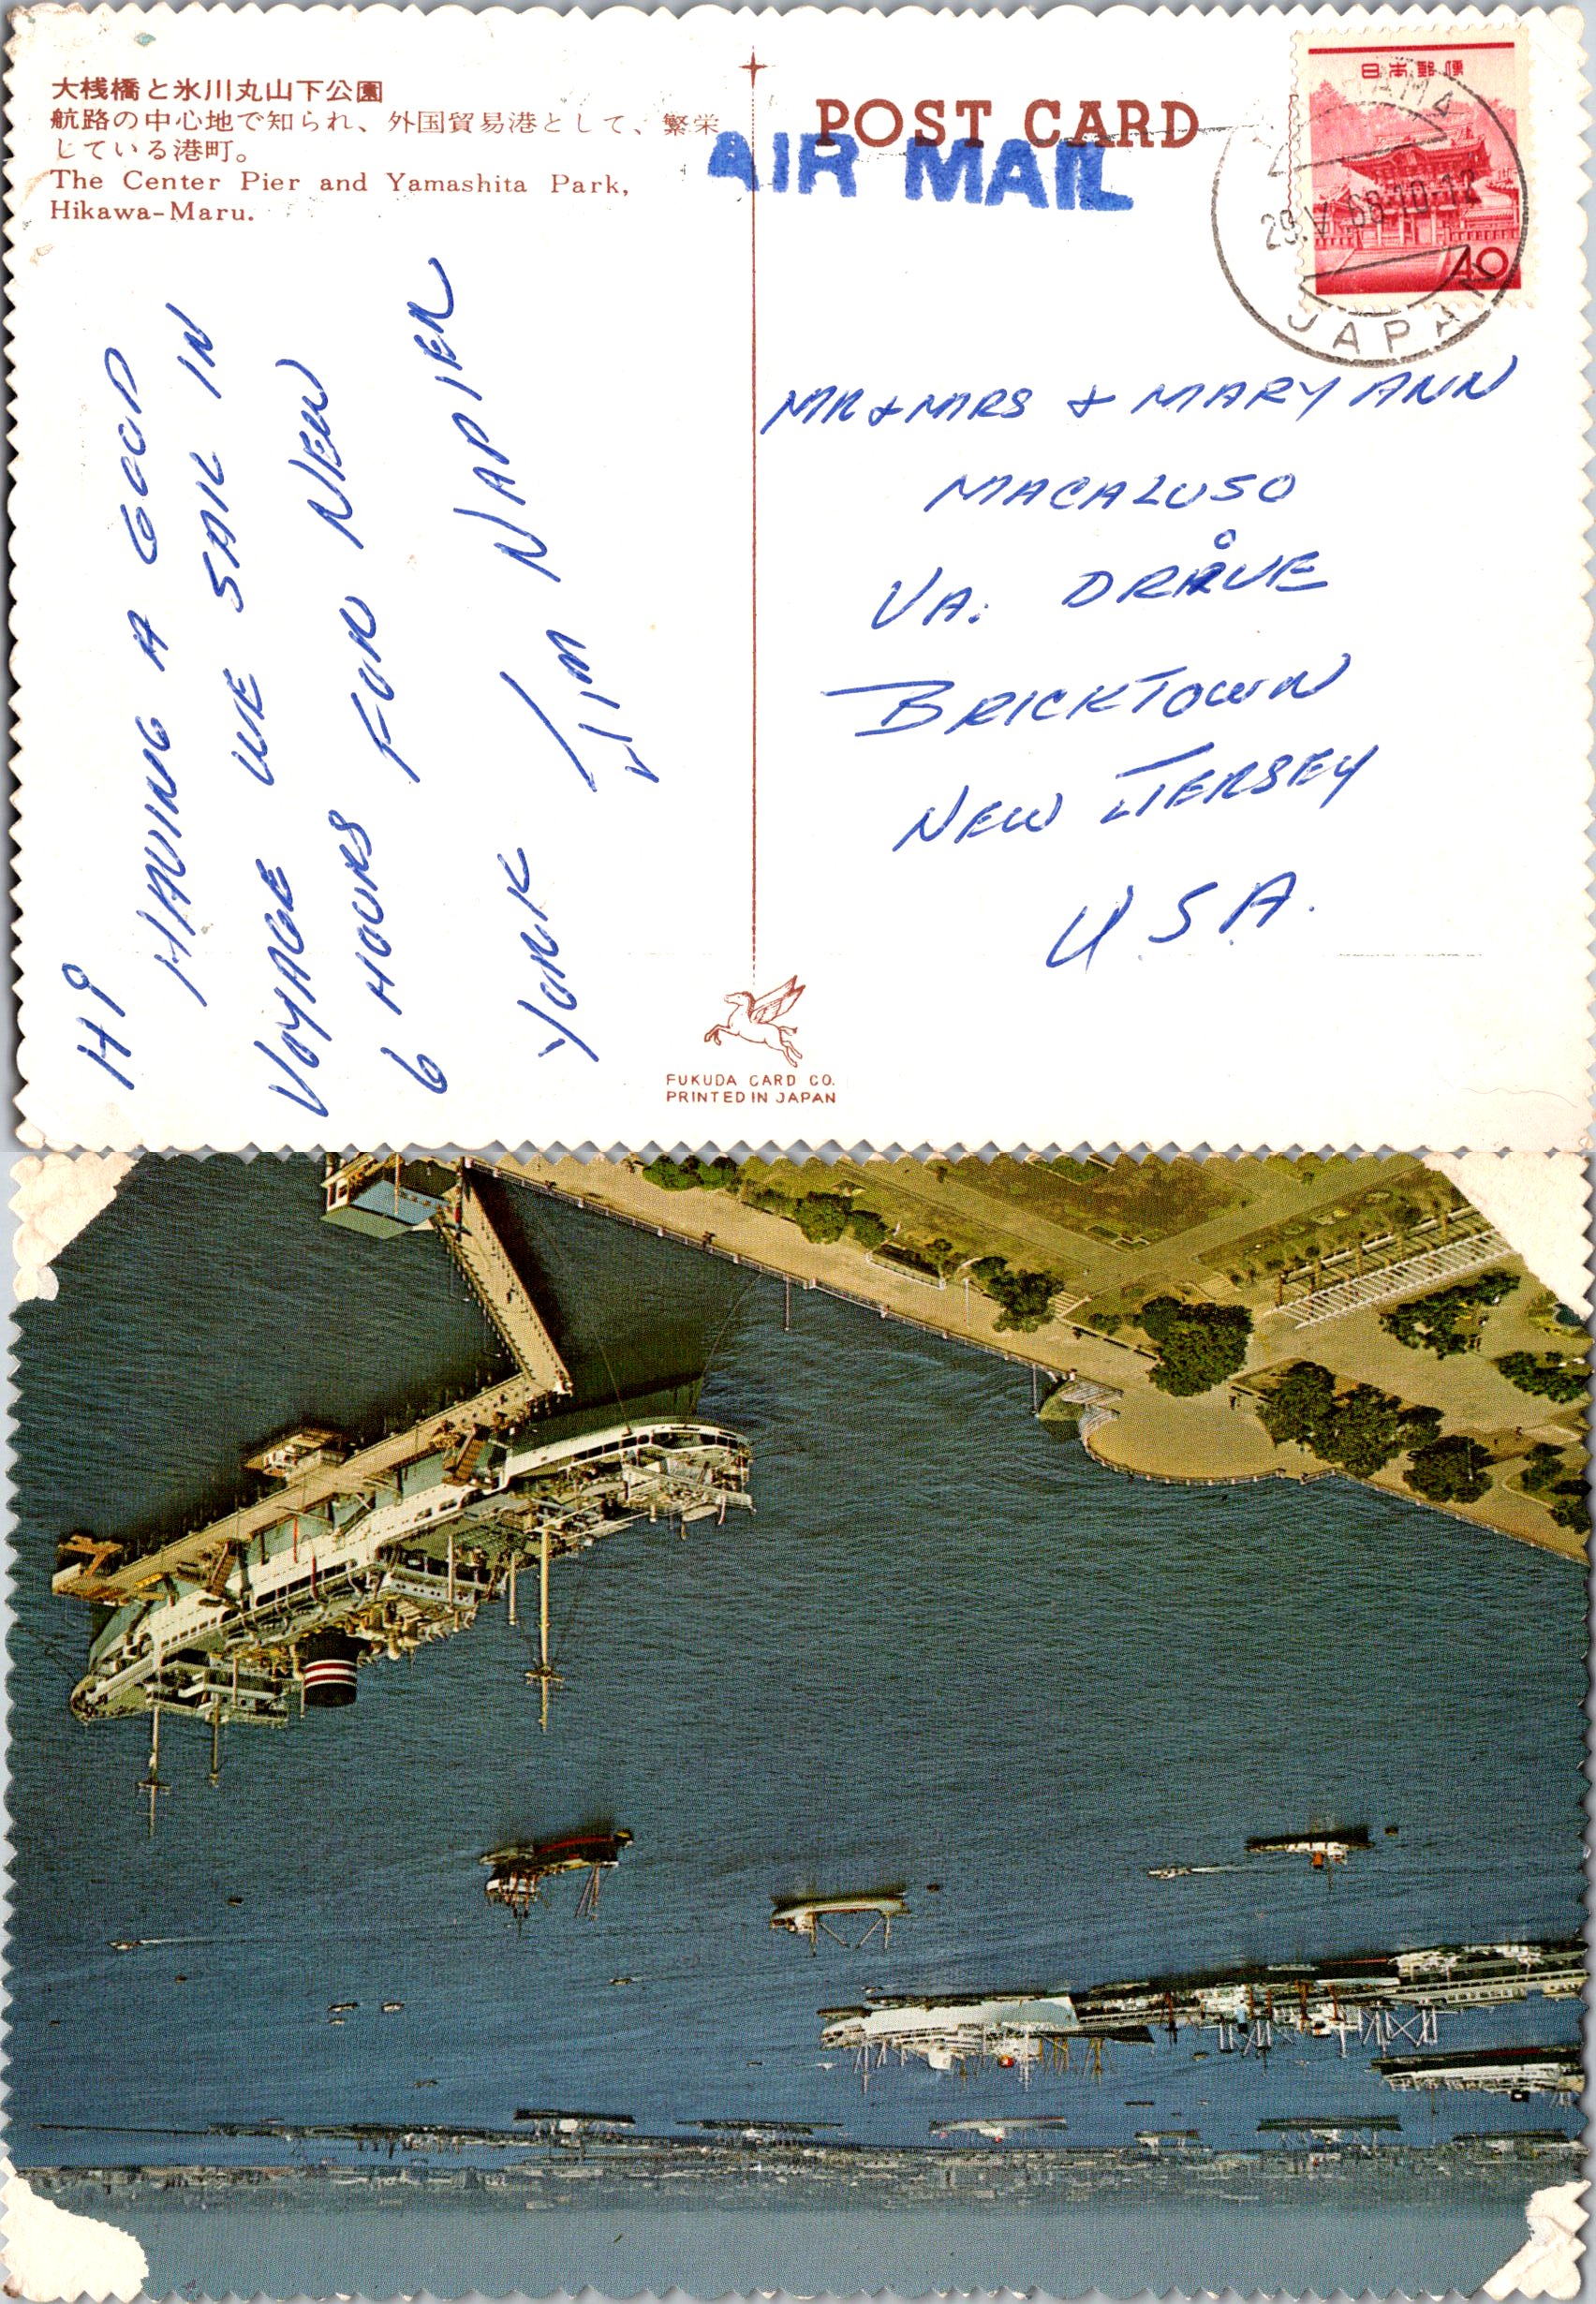 大桟橋と氷川丸山下公園
航路の中心地で知られ、外国貿易港として、繁栄
している港町。
The Center Pier and Yamashita Park,
Hikawa-Maru.
POST CARD
AIR MAIL
日本郵便
40
29.V.68.10-12
JAPAN
HI
HAVING A GOOD
VOYAGE WE SAIL IN
6 HOURS FOR NEW
YORK
JIM NAPIER
MR & MRS & MARY ANN
MACALUSO
VA. DRIVE
BRICKTOWN
NEW JERSEY
U.S.A.
FUKUDA CARD CO.
PRINTED IN JAPAN